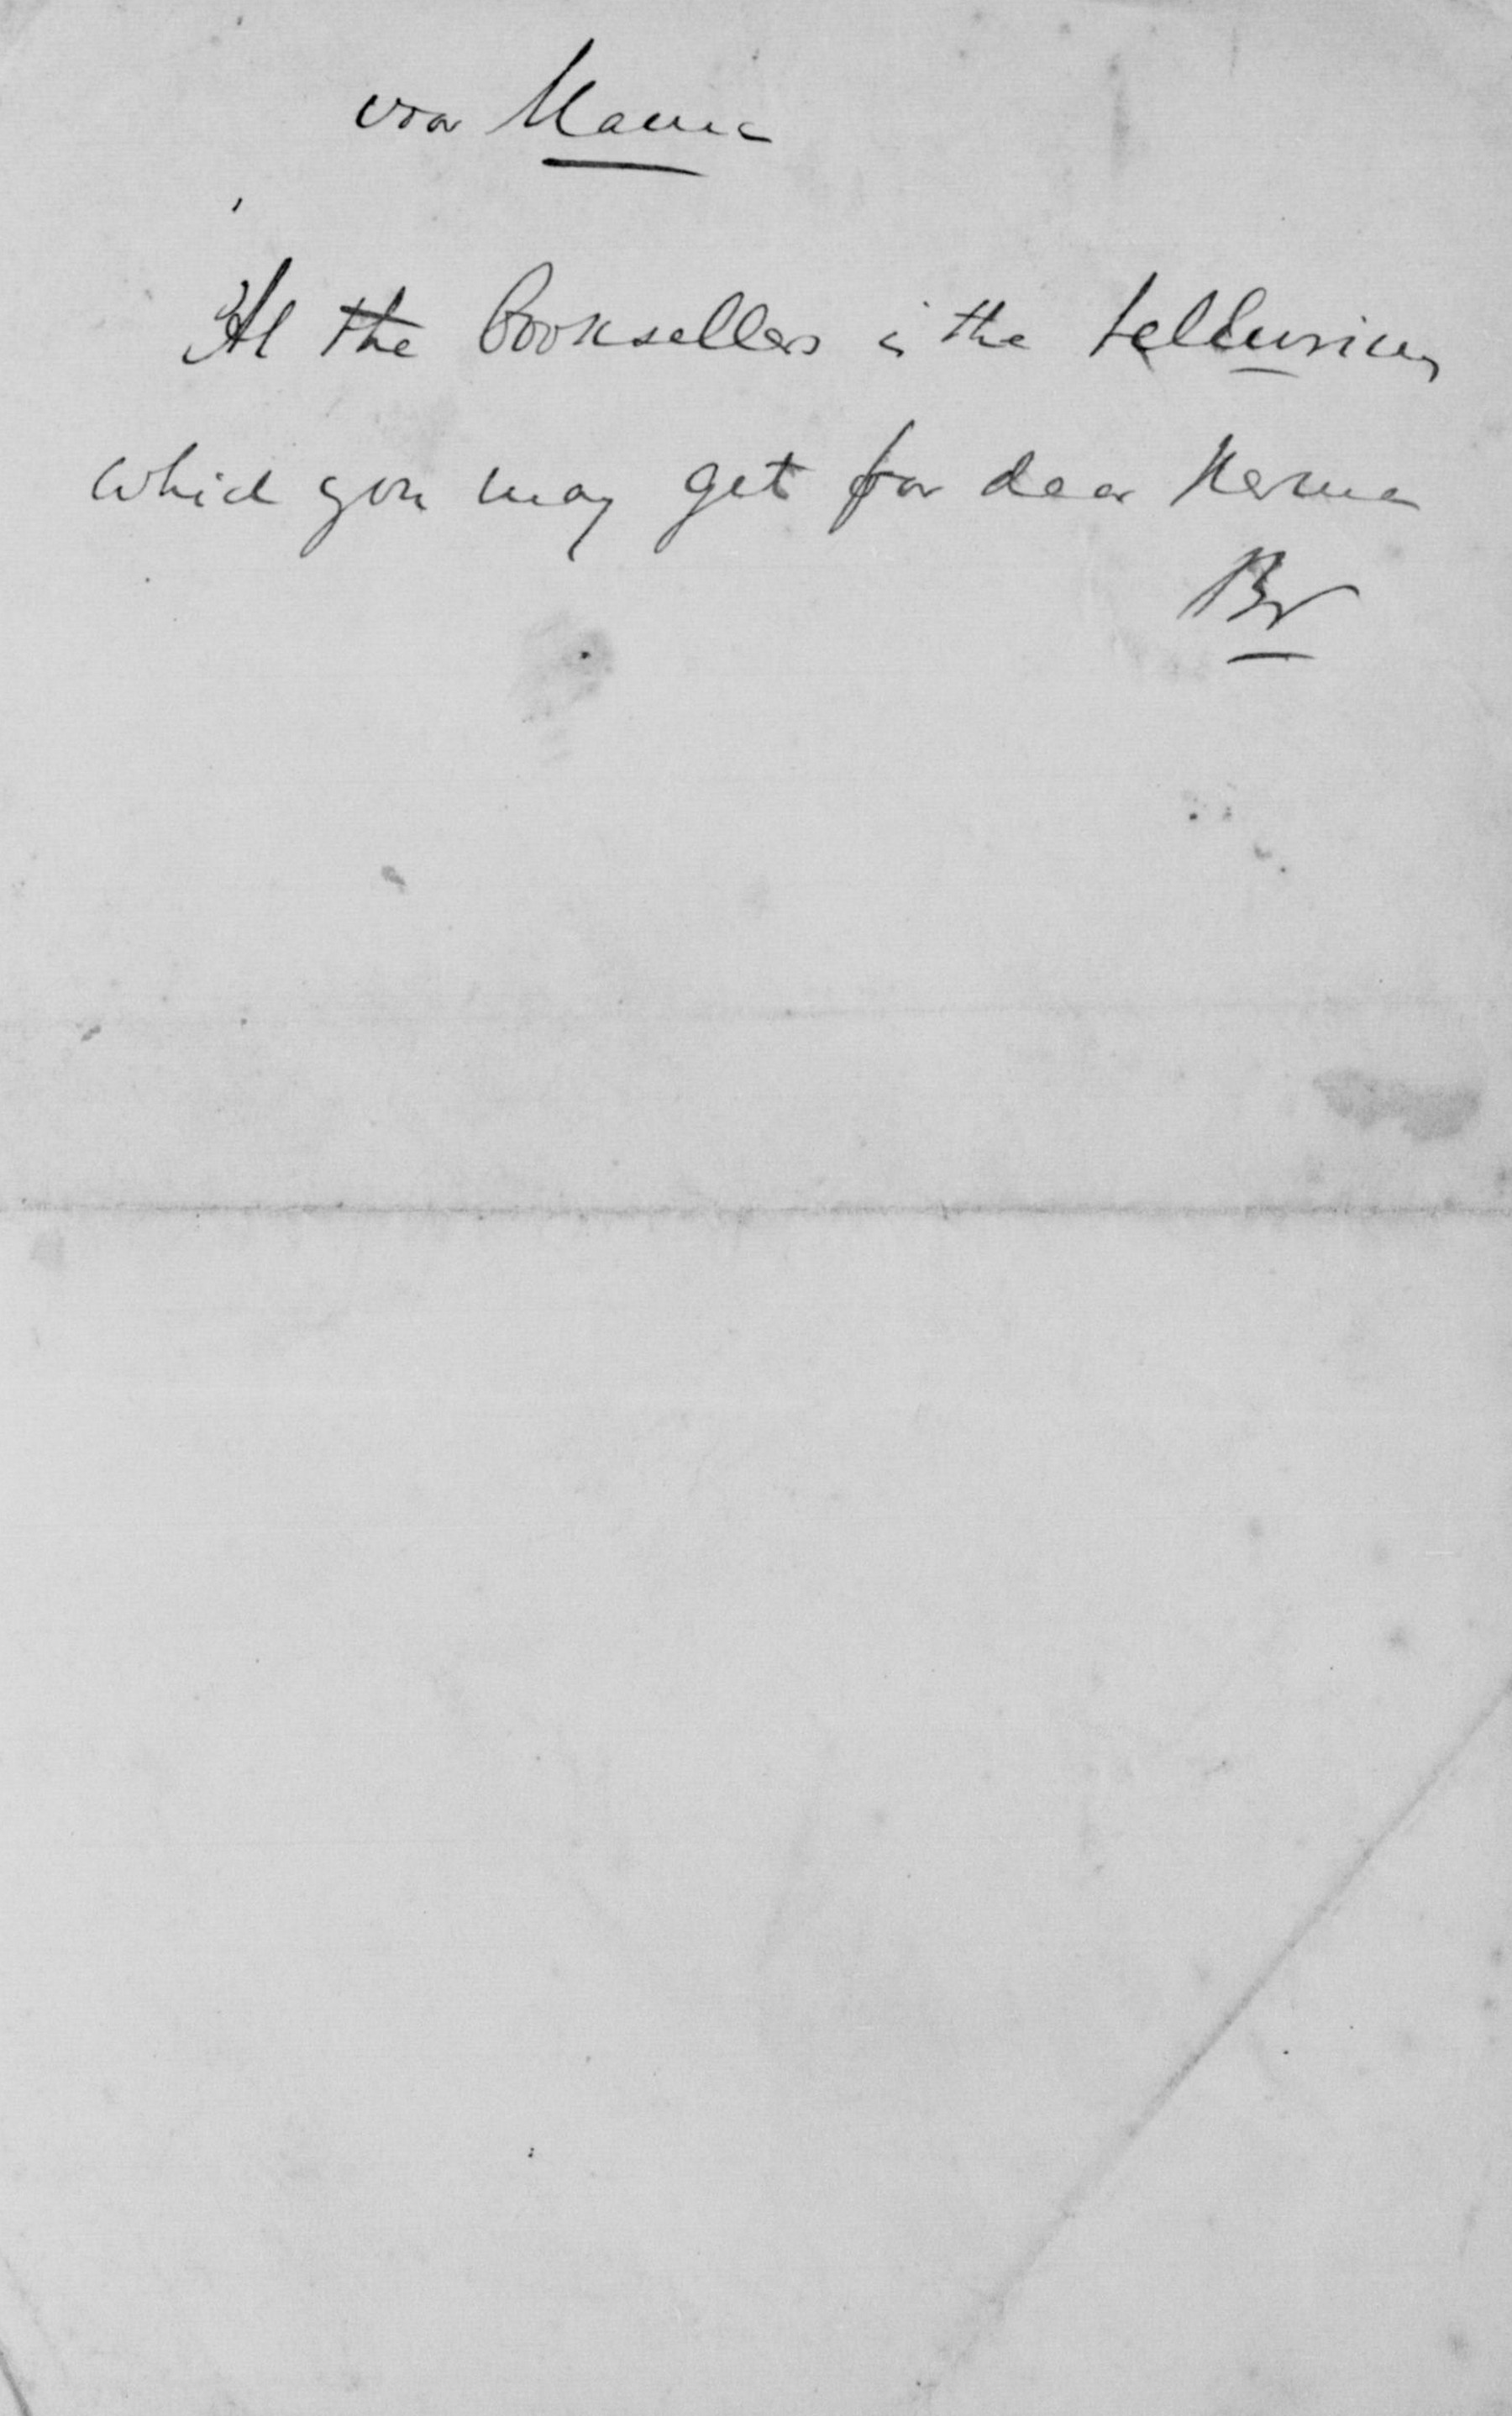 voor Mama
At the booksellers is the tellurium
which you may get for dear Herma
Br